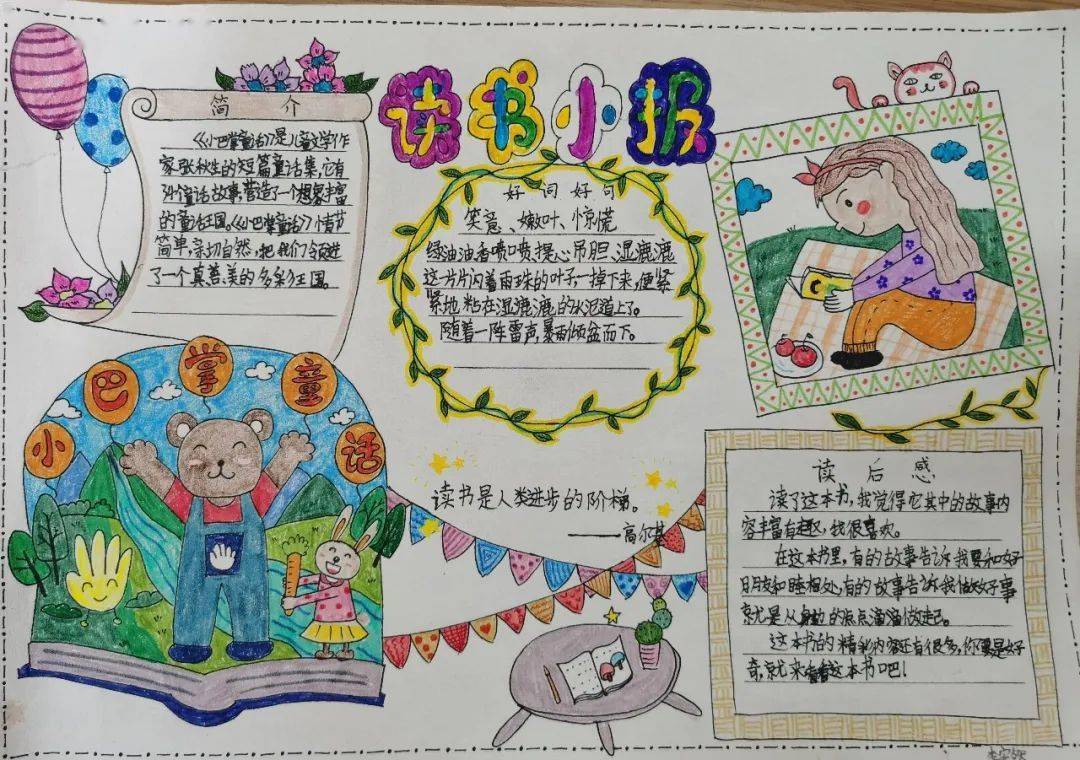 读书小报
简介
《小巴掌童话》是儿童文学作
家张秋生的短篇童话集,它有
个童话故事,营造了一个想象丰富
的童话王国。《小巴掌童话》情节
简单,亲切自然,把我们领进
了一个真、善、美的多彩王国。
好词好句
笑意、嫩叶、惊慌
绿油油香喷喷提心吊胆、湿漉漉
这一片片闪着雨珠的叶子一掉下来,便紧
紧地粘在湿漉漉的水泥道上了。
随着一阵雷声,暴雨倾盆而下。
小巴掌童话
读书是人类进步的阶梯。
——高尔基
读后感
读了这本书,我觉得它其中的故事内
容丰富有趣,我很喜欢。
在这本书里,有的故事告诉我要和好
朋友和睦相处,有的故事告诉我做好事
就是从身边的点点滴滴做起。
这本书的精彩内容还有很多,你要是好
奇,就来看看这本书吧!